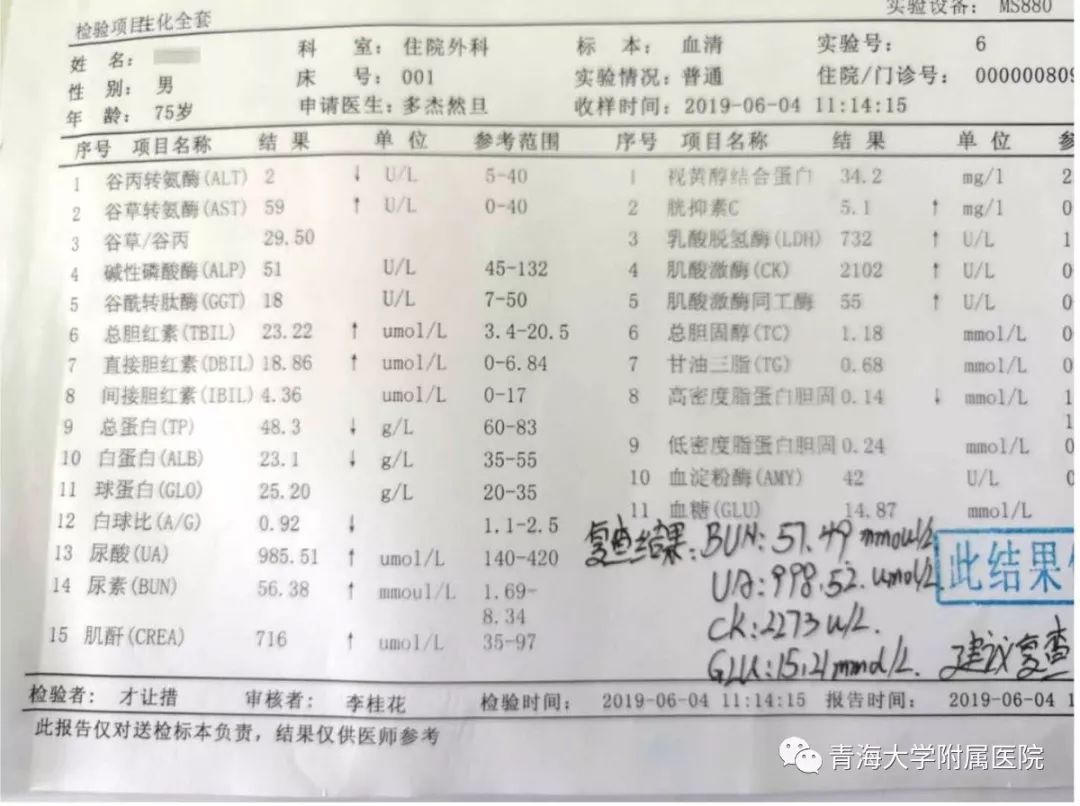 检验项目:生化全套 实验设备: MS880
姓 名: 科 室: 住院外科 标 本: 血清 实验号: 6
性 别: 男 床 号: 001 实验情况: 普通 住院/门诊号: 000000809
年 龄: 75岁 申请医生: 多杰然旦 收样时间: 2019-06-04 11:14:15
序号 项目名称 结 果 单 位 参考范围 序号 项目名称 结 果 单 位 参
1 谷丙转氨酶(ALT) 2 ↓ U/L 5-40 1 视黄醇结合蛋白 34.2 mg/l 2
2 谷草转氨酶(AST) 59 ↑ U/L 0-40 2 胱抑素C 5.1 ↑ mg/l 0
3 谷草/谷丙 29.50 3 乳酸脱氢酶(LDH) 732 ↑ U/L 1
4 碱性磷酸酶(ALP) 51 U/L 45-132 4 肌酸激酶(CK) 2102 ↑ U/L 0
5 谷酰转肽酶(GGT) 18 U/L 7-50 5 肌酸激酶同工酶 55 ↑ U/L 0
6 总胆红素(TBIL) 23.22 ↑ umol/L 3.4-20.5 6 总胆固醇(TC) 1.18 mmol/L 0
7 直接胆红素(DBIL) 18.86 ↑ umol/L 0-6.84 7 甘油三脂(TG) 0.68 mmol/L 0
8 间接胆红素(IBIL) 4.36 umol/L 0-17 8 高密度脂蛋白胆固 0.14 ↓ mmol/L 1
9 总蛋白(TP) 48.3 ↓ g/L 60-83 1
10 白蛋白(ALB) 23.1 ↓ g/L 35-55 9 低密度脂蛋白胆固 0.24 mmol/L 0
11 球蛋白(GLO) 25.20 g/L 20-35 10 血淀粉酶(AMY) 42 U/L 0
12 白球比(A/G) 0.92 ↓ 1.1-2.5 11 血糖(GLU) 14.87 mmol/L
13 尿酸(UA) 985.51 ↑ umol/L 140-420
14 尿素(BUN) 56.38 ↑ mmoul/L 1.69-
8.34
15 肌酐(CREA) 716 ↑ umol/L 35-97
复查结果: BUN: 57.49 mmoul/L
UA: 998.52 umol/L
CK: 2273 u/L.
GLU: 15.21 mmol/L. 建议复查
此结果
检验者: 才让措 审核者: 李桂花 检验时间: 2019-06-04 11:14:15 报告时间: 2019-06-04 1
此报告仅对送检标本负责, 结果仅供医师参考
青海大学附属医院